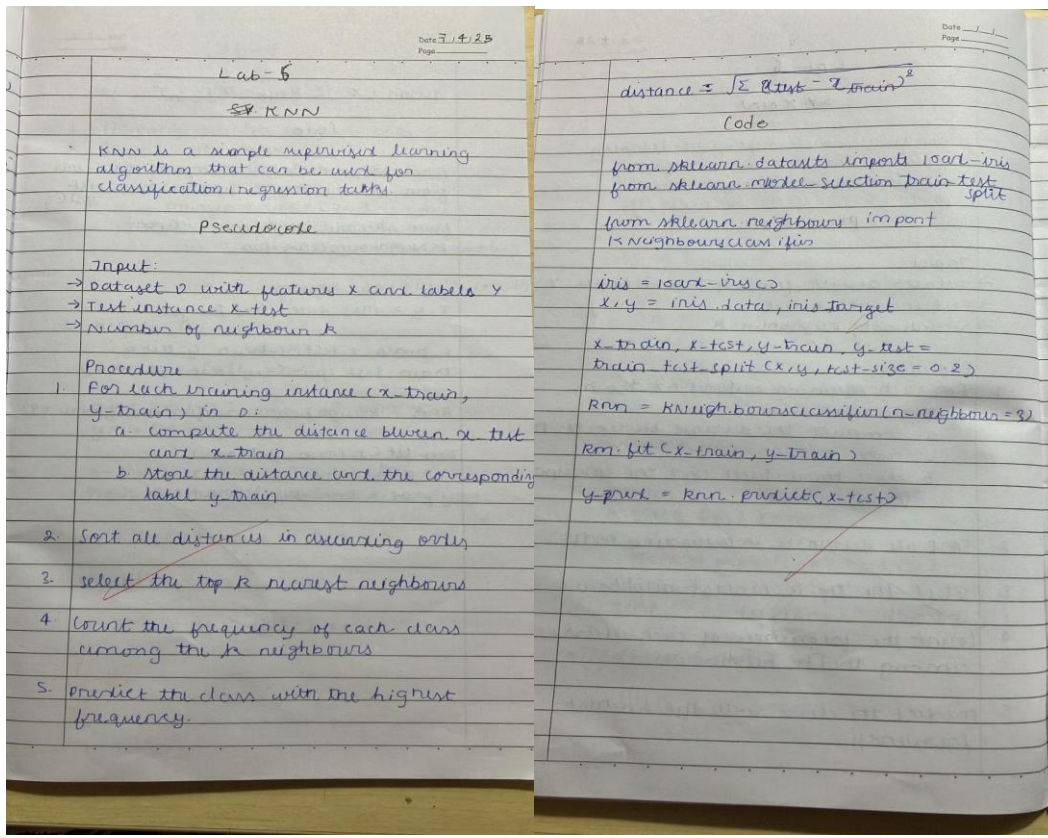 Date 7/4/25
Page
Lab-5
KNN
KNN is a simple supervised learning
algorithm that can be used for
classification/regression tasks.
Pseudocode
Input:
→ Dataset D with features X and labels Y
→ Test instance x_test
→ Number of neighbour k
Procedure
1. For each training instance (x_train,
y_train) in D:
a. compute the distance btween x_test
and x_train
b. store the distance and the corresponding
label y_train
2. Sort all distances in ascending order
3. select the top k nearest neighbours
4. Count the frequency of each class
among the k neighbours
5. Predict the class with the highest
frequency.
Date / /
Page
distance = √Σ (xtest - xtrain)²
Code
from sklearn.datasets imports load-iris
from sklearn.model_selection train_test
split
from sklearn.neighbours import
KNeighboursclassifier
iris = load-iris()
x, y = iris.data, iris target
x_train, x-test, y-train, y-test =
train_test_split (x, y, test-size = 0.2)
knn = KNeighboursclassifier(n-neighbour = 3)
knn.fit (x-train, y-train)
y-pred = knn.predict(x-test)